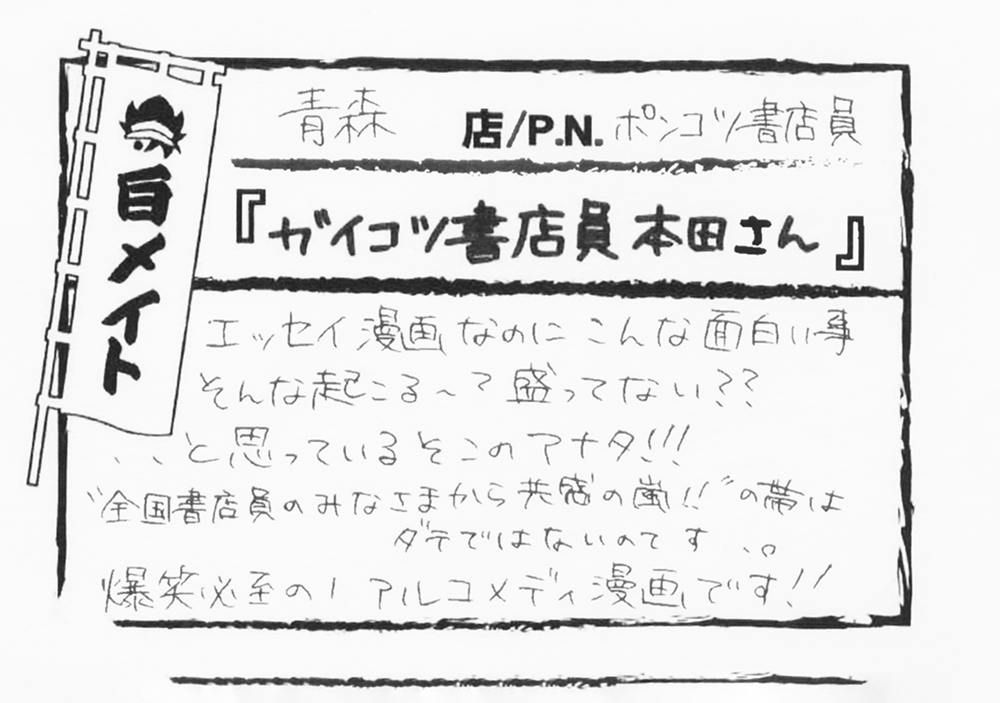 自メイト
青森 店/P.N. ポンコツ書店員
『ガイコツ書店員本田さん』
エッセイ漫画なのにこんな面白い事
そんな起こる〜?盛ってない??
、、と思っているそこのアナタ!!!
"全国書店員のみなさまから共感の嵐!!"の帯は
ダテではないのです、。
爆笑必至のリアルコメディ漫画です!!